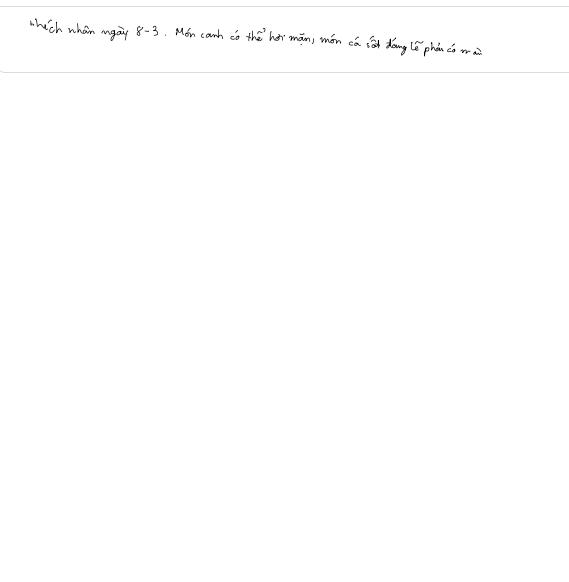 nhếch nhân ngày 8-3. Món canh có thể hơi mặn, món cá sốt đáng lẽ phải có màu